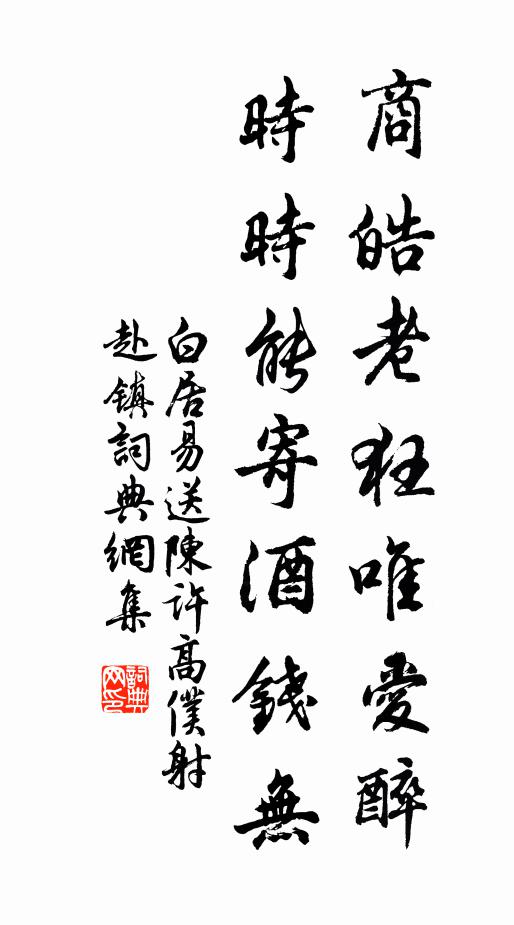 商皓老狂唯愛醉
時時能寄酒錢無
白居易送陳許高僕射
赴鎮詞典網集
詞典
网印